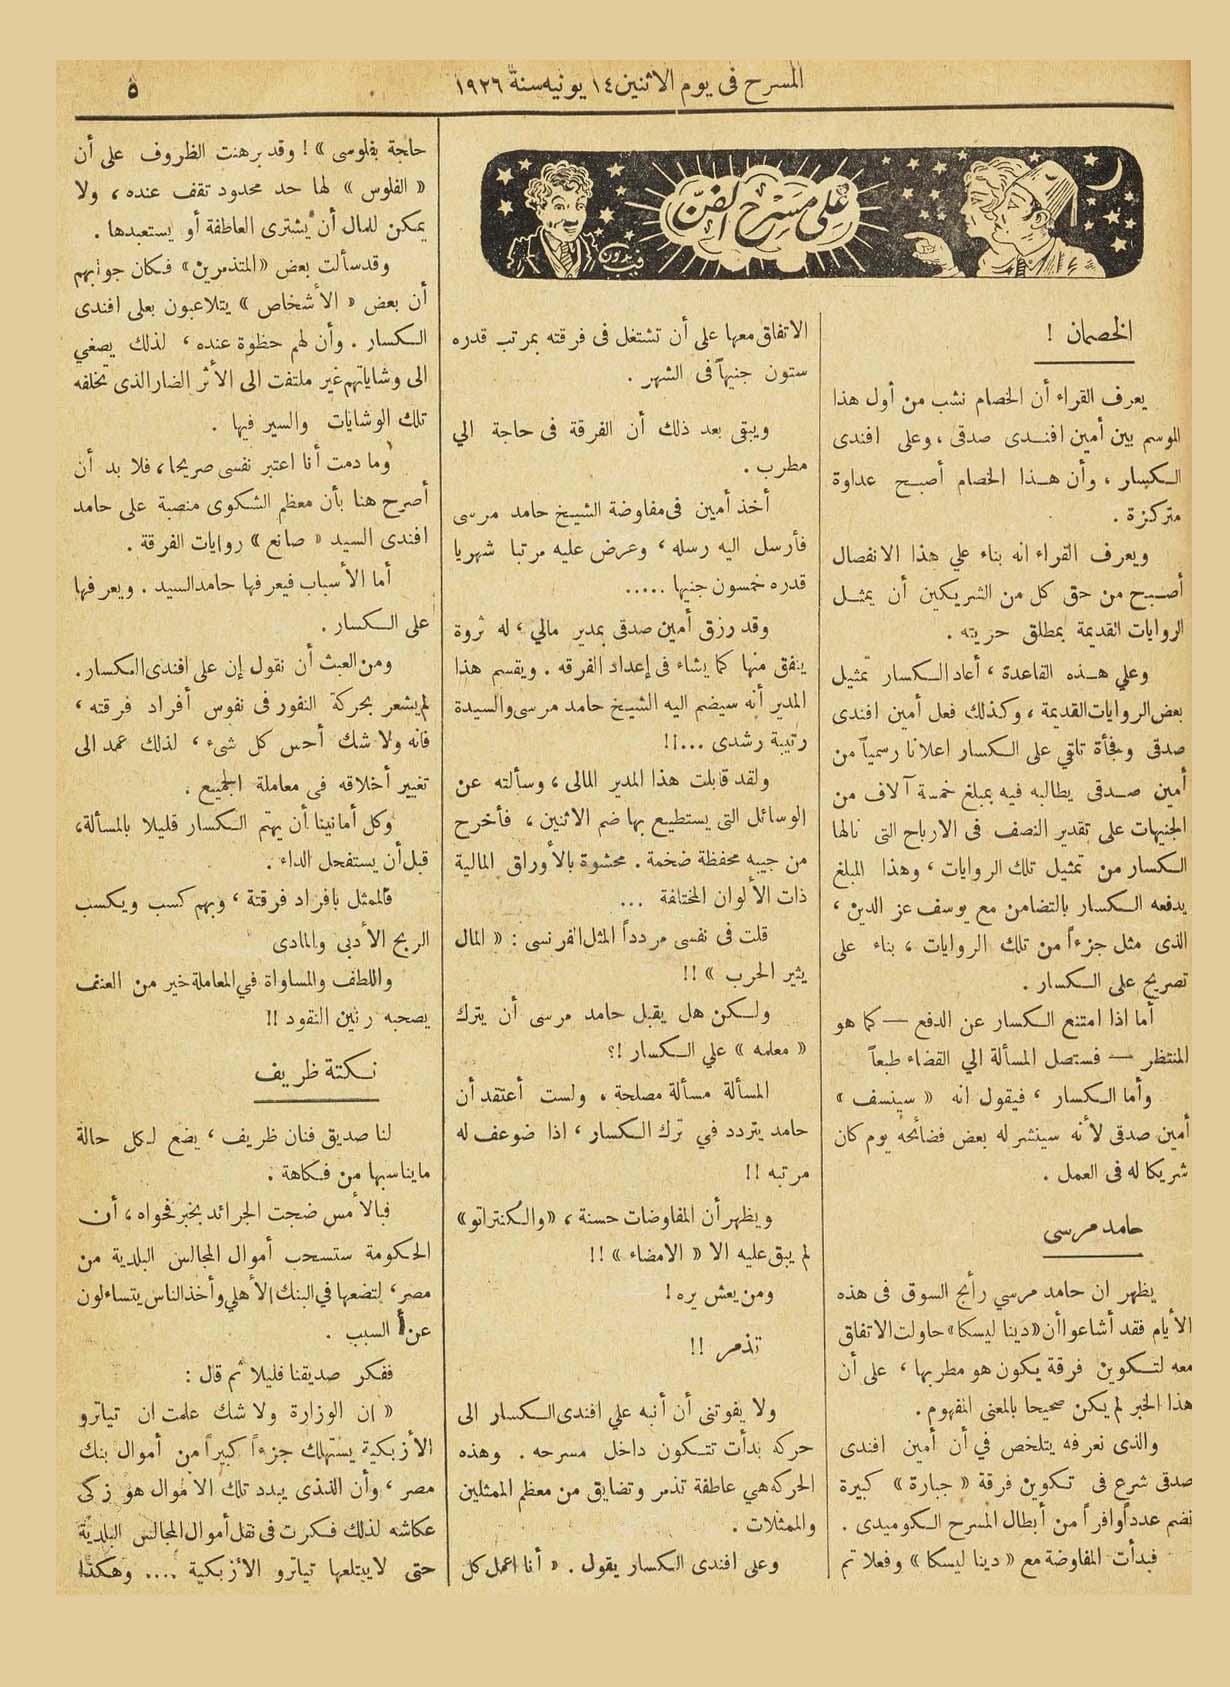 المسرح فى يوم الاثنين ١٤ يونيه سنة ١٩٢٦
٥
على مسرح الفن
فيدون
الخصمان !
يعرف القراء أن الخصام نشب من أول هذا
الموسم بين أمين افندى صدقى ، وعلى افندى
الكسار ، وأن هذا الخصام أصبح عداوة
متركزة .
ويعرف القراء انه بناء علي هذا الانفصال
أصبح من حق كل من الشريكين أن يمثل
الروايات القديمة بمطلق حريته .
وعلي هذه القاعدة ، أعاد الكسار تمثيل
بعض الروايات القديمة ، وكذلك فعل أمين افندى
صدقى وفجأة تلقي على الكسار اعلانا رسمياً من
أمين صدقى يطالبه فيه بمبلغ خمسة آلاف من
الجنيهات على تقدير النصف فى الارباح التى نالها
الكسار من تمثيل تلك الروايات ، وهذا المبلغ
يدفعه الكسار بالتضامن مع يوسف عز الدين ،
الذى مثل جزءاً من تلك الروايات ، بناء على
تصريح على الكسار .
أما اذا امتنع الكسار عن الدفع — كما هو
المنتظر — فستصل المسألة الي القضاء طبعاً
وأما الكسار ، فيقول انه « سينسف »
أمين صدقى لأنه سينشر له بعض فضائحه يوم كان
شريكا له فى العمل .
حامد مرسى
يظهر ان حامد مرسي رأج السوق فى هذه
الأيام فقد أشاعوا أن «دينا ليسكا» حاولت الاتفاق
معه لتكوين فرقة يكون هو مطربها ، على أن
هذا الخبر لم يكن صحيحا بالمعنى المفهوم .
والذى نعرفه يتلخص في أن أمين افندى
صدقى شرع فى تكوين فرقة « جبارة » كبيرة
تضم عدداً وافراً من أبطال المسرح الكوميدى .
فبدأت المفاوضة مع « دينا ليسكا » وفعلا تم
الاتفاق معها على أن تشتغل فى فرقته بمرتب قدره
ستون جنيهاً فى الشهر .
ويبقى بعد ذلك أن الفرقة فى حاجة الي
مطرب .
أخذ أمين فى مفاوضة الشيخ حامد مرسى
فأرسل اليه رسله ، وعرض عليه مرتبا شهريا
قدره خمسون جنيها .....
وقد رزق أمين صدقى بمدير مالي ، له ثروة
ينفق منها كما يشاء فى إعداد الفرقه . ويقسم هذا
المدير أنه سيضم اليه الشيخ حامد مرسى والسيدة
رتيبة رشدى ...!!
ولقد قابلت هذا المدير المالى ، وسألته عن
الوسائل التى يستطيع بها ضم الاثنين ، فأخرح
من جيبه محفظة ضخمة . محشوة بالأوراق المالية
ذات الألوان المختلفة ...
قلت فى نفسى مردداً المثل الفرنسى : « المال
يثير الحرب » !!
ولكن هل يقبل حامد مرسى أن يترك
« معلمه » علي الكسار !؟
المسألة مسألة مصلحة ، ولست أعتقد أن
حامد يتردد في ترك الكسار ، اذا ضوعف له
مرتبه !!
ويظهر أن المفاوضات حسنة ، «والكنتراتو»
لم يبق عليه الا « الامضاء » !!
ومن يعش يره !
تذمر !!
ولا يفوتنى أن أنبه علي افندى الكسار الى
حركه بدأت تتكون داخل مسرحه . وهذه
الحركه هي عاطفة تذمر وتضايق من معظم الممثلين
والممثلات .
وعلى افندى الكسار يقول . « أنا اعمل كل
حاجة بفلوسى » ! وقد برهنت الظروف على أن
« الفلوس » لها حد محدود تقف عنده ، ولا
يمكن للمال أن يشترى العاطفة أو يستعبدها .
وقد سألت بعض «المتذمرين» فكان جوابهم
أن بعض « الأشخاص » يتلاعبون بعلى افندى
الكسار . وأن لهم حظوة عنده ، لذلك يصغي
الى وشاياتهم غير ملتفت الى الأثر الضار الذى تخلفه
تلك الوشايات والسير فيها .
وما دمت أنا اعتبر نفسى صريحا ، فلا بد أن
أصرح هنا بأن معظم الشكوى منصبة على حامد
افندى السيد « صانع » روايات الفرقة .
أما الأسباب فيعرفها حامد السيد . ويعرفها
على الكسار .
ومن العبث أن نقول إن على افندى الكسار .
لم يشعر بحركة النفور فى نفوس أفراد فرقته ،
فانه ولا شك أحس كل شىء ، لذلك عمد الى
تغيير أخلاقه فى معاملة الجميع .
وكل أمانينا أن يهتم الكسار قليلا بالمسألة ،
قبل أن يستفحل الداء .
فالممثل بافراد فرقتة ، وبهم كسب ويكسب
الربح الأدبى والمادى
واللطف والمساواة في المعاملة خير من العنف
يصحبه رنين النقود !!
نكتة ظريف
لنا صديق فنان ظريف ، يضع لكل حالة
مايناسبها من فكاهة .
فبالأمس ضجت الجرائد بخبر فحواه ، أن
الحكومة ستسحب أموال المجالس البلدية من
مصر ، لتضعها في البنك الأهلي وأخذ الناس يتساءلون
عن السبب .
ففكر صديقنا قليلا ثم قال :
« ان الوزارة ولا شك علمت ان تياترو
الأزبكية يستهلك جزءاً كبيراً من أموال بنك
مصر ، وأن الذى يبدد تلك الاموال هو زكى
عكاشه لذلك فكرت فى نقل أموال المجالس البلدية
حتى لايبتلعها تياترو الأزبكية .... وهكذا